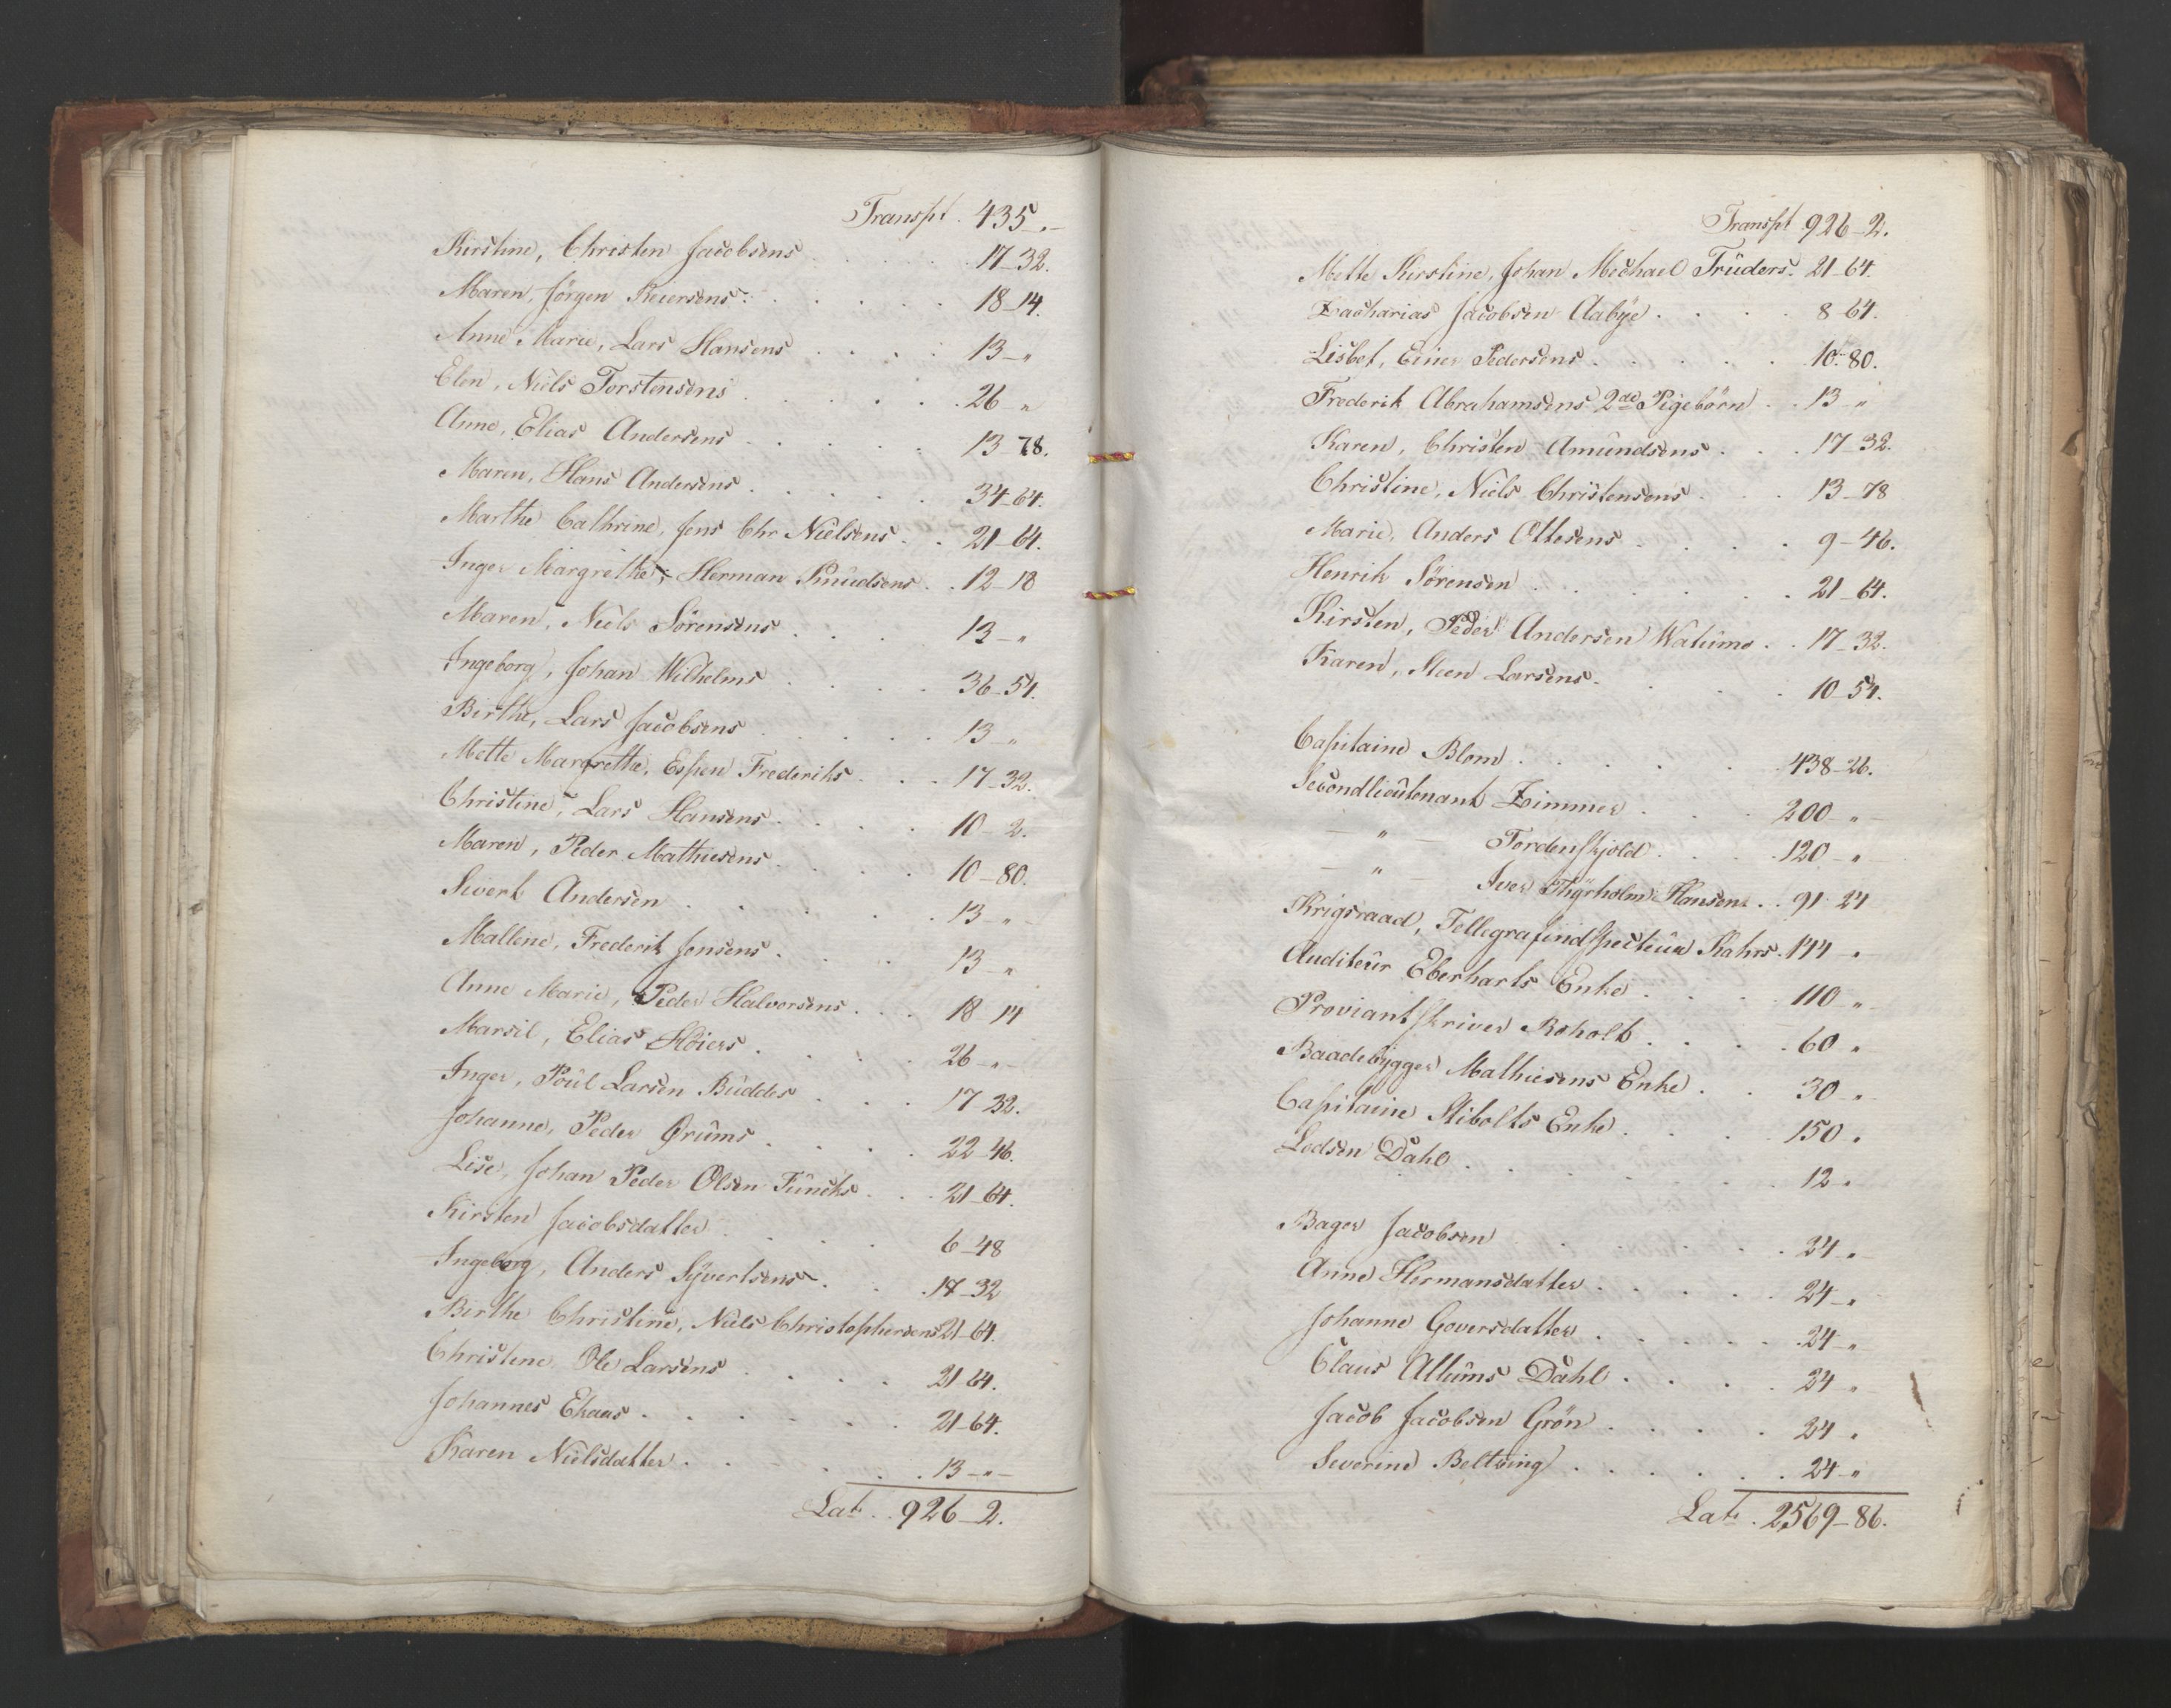 Transpt. 435 „ -
Kirstine, Christen Jacobsens . . . . 17-32.
Maren, Jørgen Reiersens . . . . 18-14.
Anne Marie, Lars Hansens . . . . 13-„
Elen, Niels Torstensens . . . . 26-„
Anne, Elias Andersens . . . . 13-78.
Maren, Hans Andersens . . . . 34-64.
Marthe Cathrine, Jens Chr Nielsens . . 21-64.
Inger Margrethe, Herman Knudsens . . 12-18
Maren, Niels Sørensens . . . 13-„
Ingeborg, Johan Wilhelms . . . . 36-54.
Birthe, Lars Jacobsens . . . . 13-„
Mette Margrethe, Espen Frederiks . . . 17-32.
Christine, Lars Hansens . . . . 10-2.
Maren, Peder Mathiesens . . . . 10-80.
Sivert Andersen . . . . 13-„
Mallene, Frederik Jensens . . . . 13-„
Anne Marie, Peder Halvorsens . . . 18-14
Marsil, Elias Høiers . . . . 26-„-
Inger, Poul Larsen Buddes . . . 17-32.
Johanne, Peder Ørums . . . . 22-46.
Lise, Johan Peder Olsen Funcks . . . 21-64.
Kirsten Jacobsdatter . . . . 6-48
Ingeborg, Anders Syvertsens . . . 17-32
Birthe Christine, Niels Christophersens 21-64.
Christene Ole Larsens . . . . 21-64.
Johannes Ekaas . . . . 21-64.
Karen Nielsdatter . . . . 13-„-
Lat. . . 926-2.
Transpt 926-2.
Mette Kirstine, Johan Michael Truders. 21-64.
Zacharias Jacobsen Aabye . . . . 8-64.
Lisbet, Einer Pedersens . . . . 10-80.
Frederik Abrahamsens 2de Pigebørn . . 13-„
Karen, Christen Amundsens . . . 17-32.
Christine, Niels Christensens . . . 13-78
Marie, Anders Ottesens . . . . 9-46.
Henrik Sørensen . . . . 21-64.
Kirsten, Peder Andersen Watums . . 17-32.
Karen, Steen Larsens . . . . 10-54.
Capitaine Blom . . . . 438-26.
Secondlieutenant Zimmer . . . 200-„-
-„- Tordenskjold . . . 120-„-
-„- Iver Thyrholm Hansens . . 91-24
Krigsraad, Tellegrafindspecteur Kahrs. 144 „
Auditeur Eberharts Enke . . . . 110-„-
Proviantskriver Roholt . . . . 60 „
Baadebygger Mathiesens Enke . . 30-„-
Capitaine Stibolts Enke . . . . 150 „
Lodsen Dahl . . . . 12 „
Bager Jacobsen . . . . 24 „
Anne Hermansdatter . . . . 24-„
Johanne Goversdatter . . . . 24-„
Claus Altums Dahl . . . . 24 „
Jacob Jacobsen Grøn . . . . 24 „
Severine Beltzing . . . . 24-„
Lat. . 2569-86.